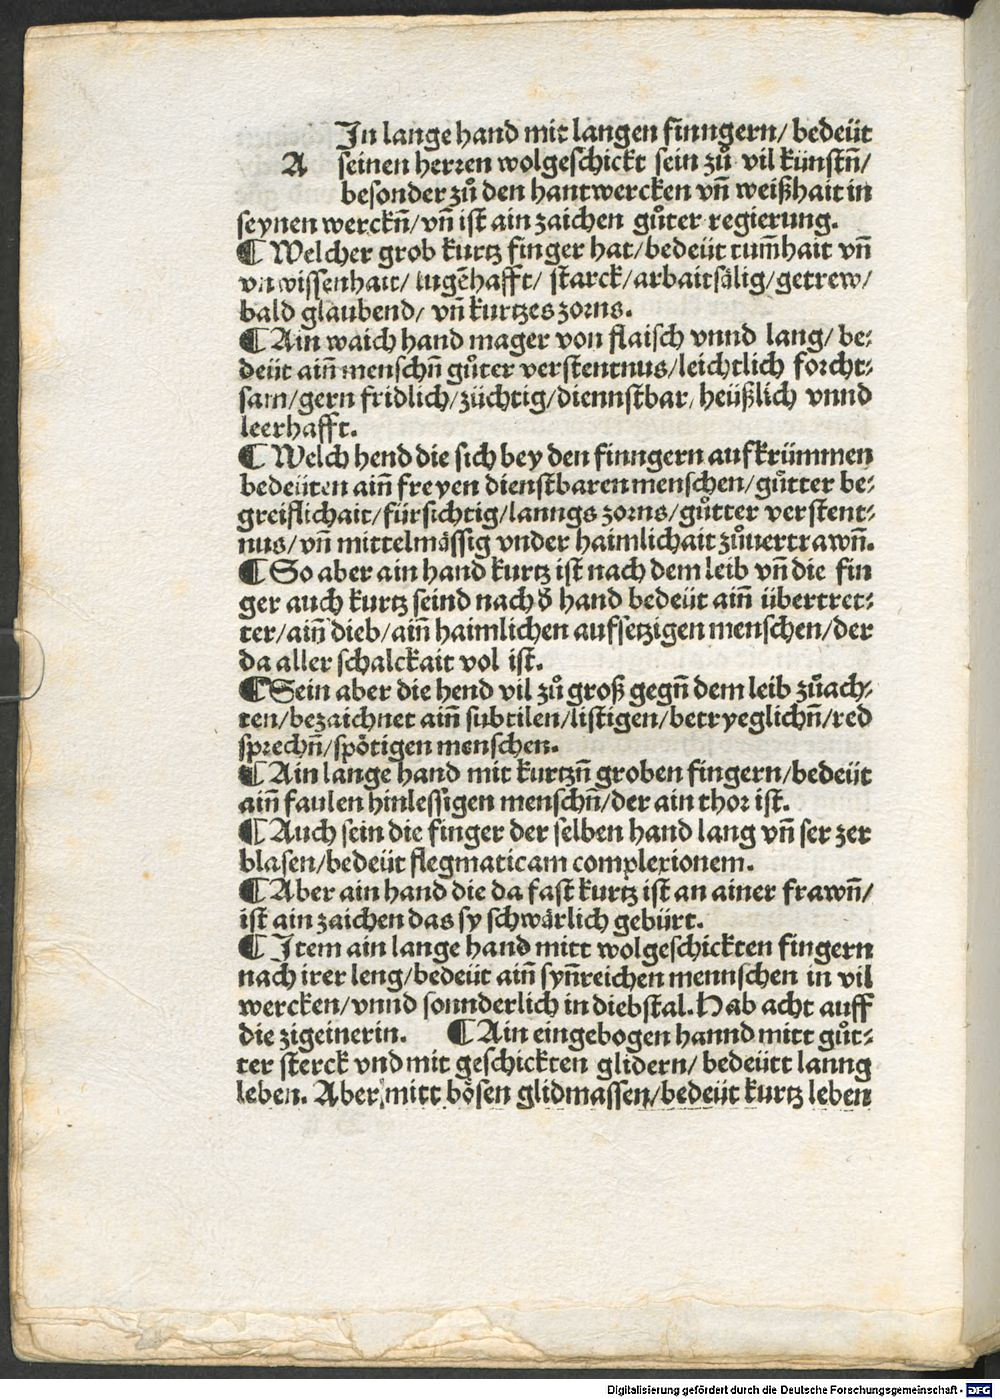 A Jn lange hand mit langen finngern/ bedeüt
seinen herꝛen wolgeschickt sein zů vil künstn̄/
besonder zů den hantwercken vn̄ weißhait in
seynen werckn̄/vn̄ ist ain zaichen gůter regierung.
¶ Welcher grob kurtz finger hat/bedeüt tum̄hait vn̄
vnwissenhait/ lugēhafft/ starck/arbaitsälig/getrew/
bald glaubend/ vn̄ kurtzes zoꝛns.
¶ Ain waich hand mager von flaisch vnnd lang/ be⸗
deüt ain̄ menschn̄ gůter verstentnus/leichtlich foꝛcht⸗
sam/gern fridlich/züchtig/diennstbar/ heüßlich vnnd
leerhafft.
¶ Welch hend die sich bey den finngern aufkrümmen
bedeüten ain̄ freyen dienstbaren menschen/gůtter be⸗
greiflichait/fürsichtig/lanngs zoꝛns/gůtter verstent⸗
nus/vn̄ mittelmässig vnder haimlichait zůuertrawn̄.
¶ So aber ain hand kurtz ist nach dem leib vn̄ die fin
ger auch kurtz seind nach d̄ hand bedeüt ain̄ übertret⸗
ter/ain̄ dieb/ain̄ haimlichen aufsetzigen menschen/der
da aller schalckait vol ist.
¶ Sein aber die hend vil zů groß gegn̄ dem leib zůach⸗
ten/bezaichnet ain̄ subtilen/listigen/betryeglichn̄/red
spꝛechn̄/spötigen menschen.
¶ Ain lange hand mit kurtzn̄ groben fingern/bedeüt
ain̄ faulen hinlessigen menschn̄/der ain thoꝛ ist.
¶ Auch sein die finger der selben hand lang vn̄ ser zer
blasen/bedeüt flegmaticam complexionem.
¶ Aber ain hand die da fast kurtz ist an ainer frawn̄/
ist ain zaichen das sy schwärlich gebürt.
¶ Jtem ain lange hand mitt wolgeschickten fingern
nach irer leng/bedeüt ain̄ syn̄reichen mennschen in vil
wercken/vnnd sonnderlich in diebstal. Hab acht auff
die zigeinerin. ¶ Ain eingebogen hannd mitt gůt⸗
ter sterck vnd mit geschickten glidern/ bedeütt lanng
leben. Aber mitt bösen glidmassen/bedeüt kurtz leben
Digitalisierung gefördert durch die Deutsche Forschungsgemeinschaft - DFG